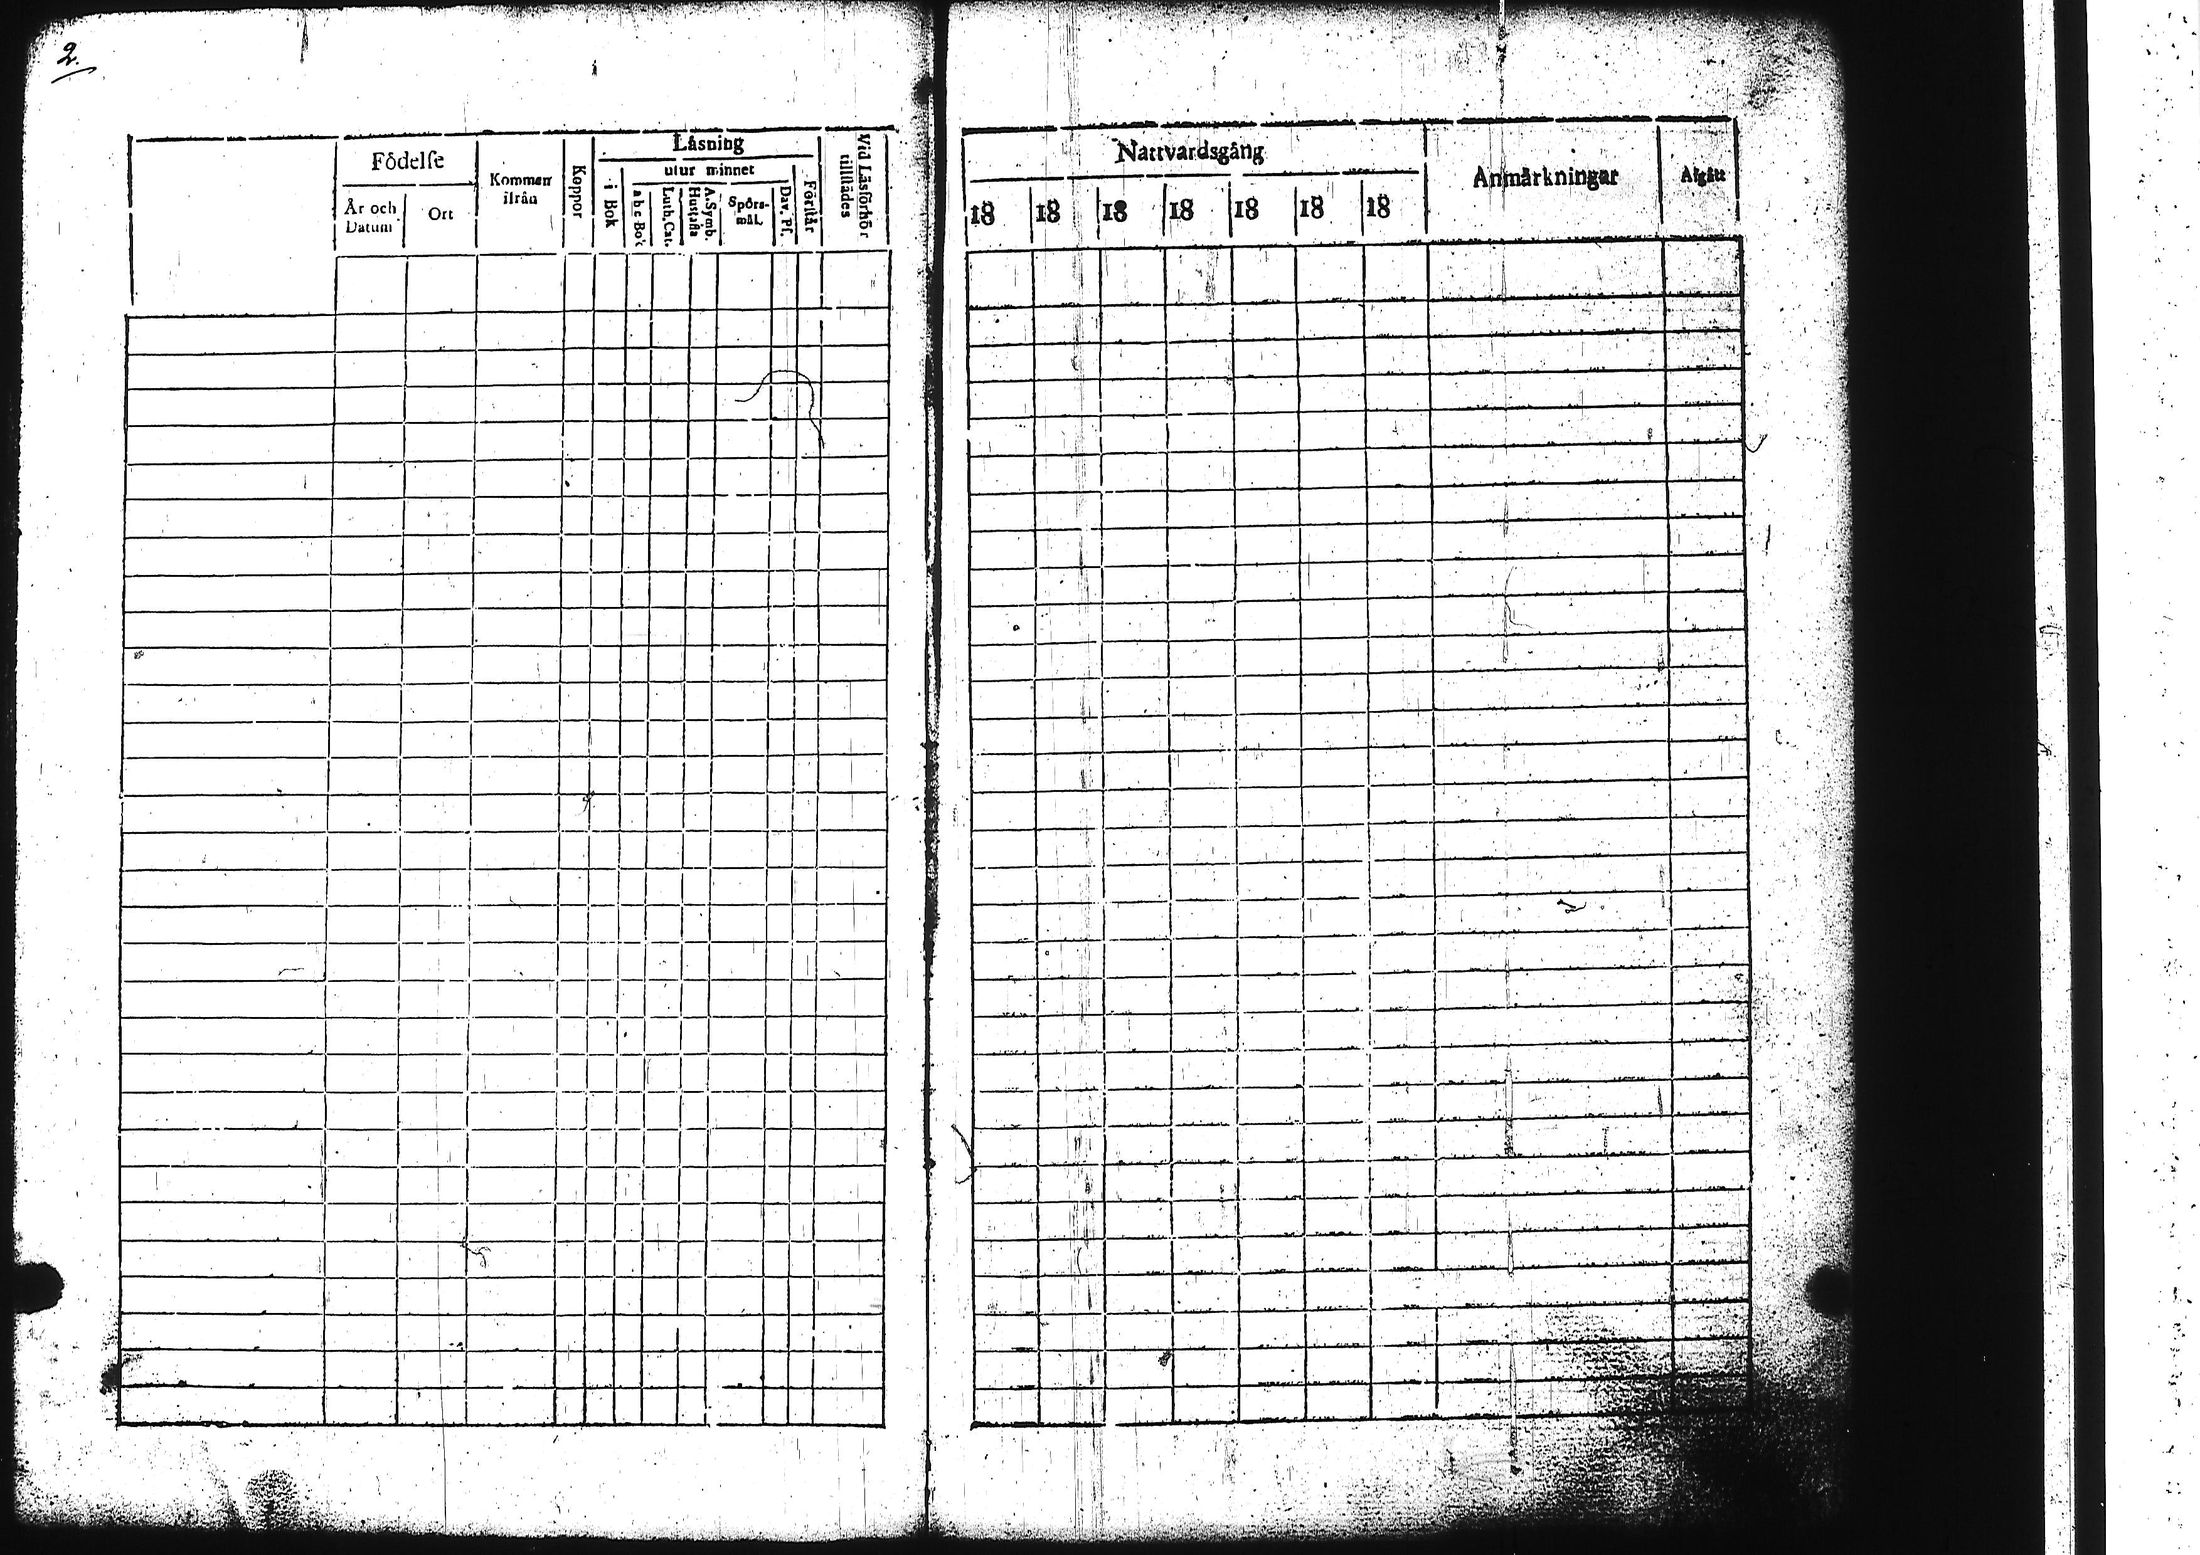 2.
Födelse
År och Datum
Ort
Kommen ifrån
Koppor
Läsning
i Bok
utur minnet
a b c Bok
Luth. Cat.
A. Symb. Hustafla
Spörs-mål.
Dav. Ps.
Förstår
Vid Läsförhör tillstädes
Nattvardsgång
18 18 18 18 18 18 18
Anmärkningar
Afgått